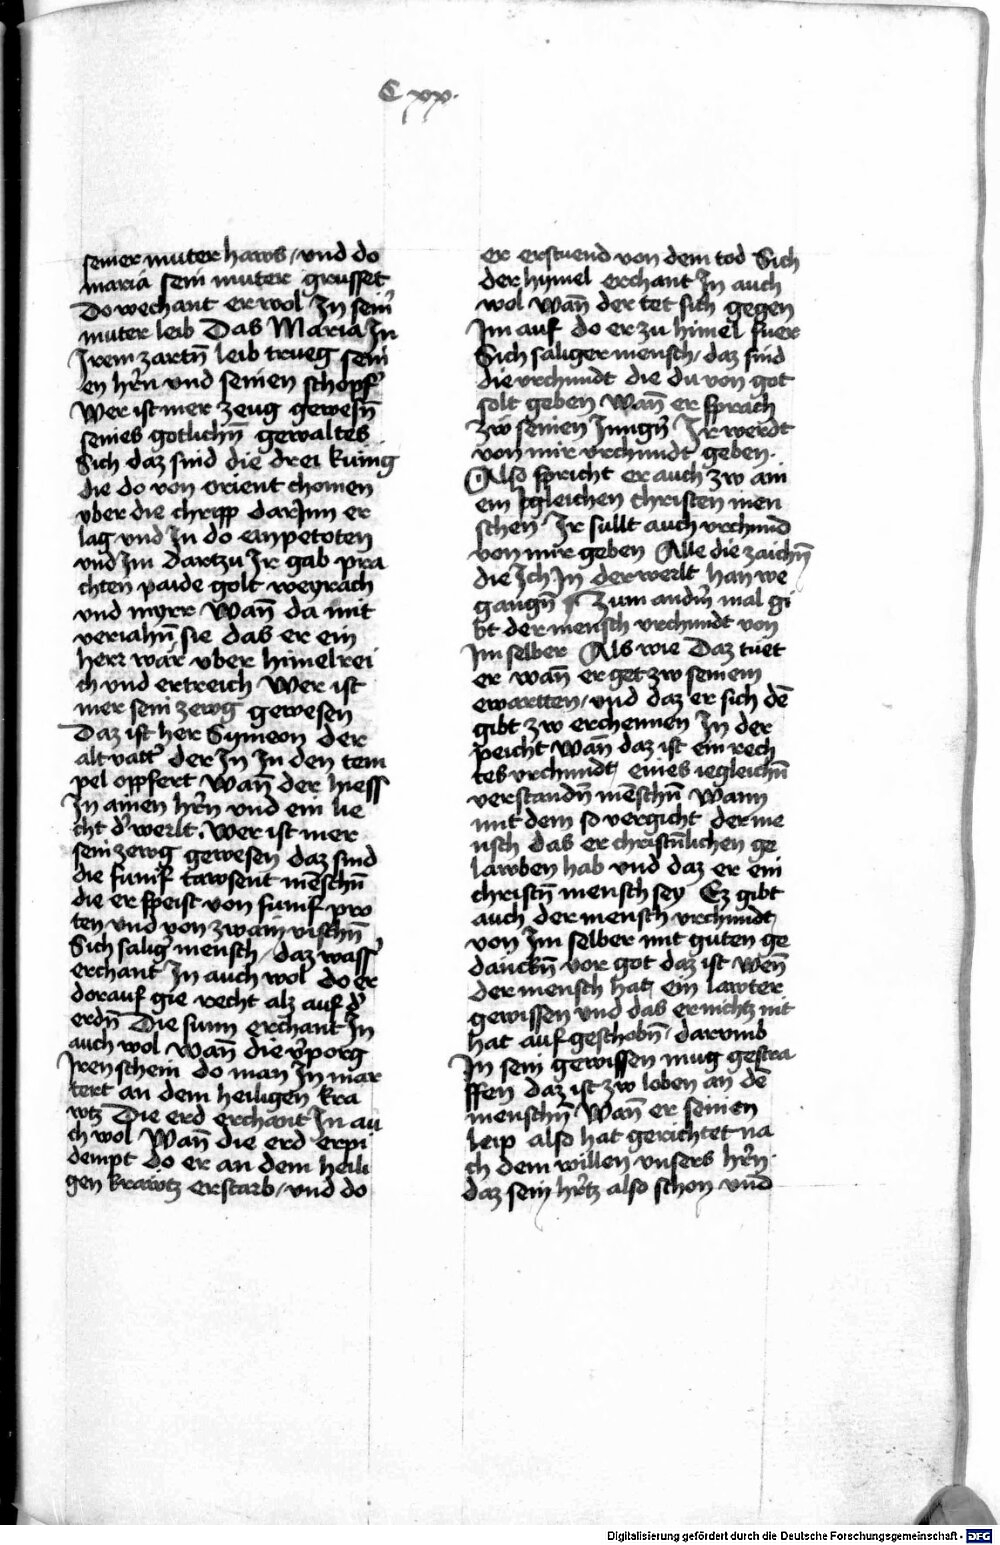 C xx.
seiner muter haws / und do
maria sein muter grusset
Do wechant er wol In sein̄
muter leib Das Maria In
Irem zartn̄ leib trueg sein
en hr̄n und seinen schopf̄
Wer ist mer zeug gewesn̄
seines gotlichn̄ gewaltes
Sich daz sind die drei kunig
die do von orient chomen
vber die chripp darInn er
lag und In do anpetoten
und Im dartzu Ir gab pra
chten paide golt weyrach
und myrr Wan̄ da mit
veriahn̄ sie das er ein
herr wär vber himelrei
ch und ertreich Wer ist
mer sein zewg gewesen
Daz ist her Symeon der
altvatt̄ der In In den tem
pel opfert Wan̄ der hiess
In ainen hr̄n und ein lie
cht d̄ werlt. Wer ist mer
sein zewg gewesen daz sind
die fumf tawsent mēschn̄
die er speist von fumf pro
ten und von zwain vischn̄
Sich saliḡ mensch / daz wass̄
erchant In auch wol do er
dorauf gie recht alz auf d̄
erdn̄ Die sunn erchant In
auch wol Wan̄ die v̄porg
Iren schein do man In mar
tert an dem heiligen kra
wtz Die erd erchant In au
ch wol Wan̄ die erd erpi
dempt do er an dem heili
gen krawtz erstarb / und do
er erstuend von dem tod Sich
der hymel erchant In auch
wol Wan̄ der tet sich gegen
Im auf do er zu himel fuer
Sich saliger mensch / daz sind
die vrchundt die du von got
solt geben Wan̄ er sprach
zw seinen Iungn̄ Ir werdt
von mir vrchundt geben.
Also spricht er auch zw ain
em igleichen christen men
schen Ir sullt auch vrchund
von mir geben Alle die zaichn̄
die Ich In der werlt han we
gangn̄ Zum andn̄ mal gi
bt der mensch vrchundt von
Im selber Als wie Daz tuet
er wan̄ er get zw seinem
ewartten / und daz er sich dē
gibt zw erchennen In der
peicht Wan̄ daz ist ein rech
tes vrchundt eines iegleichn̄
verstandn̄ mēschn̄ Wann
mit dem so vergicht der me
nsch das er christn̄lichen ge
lawben hab und daz er ein
christn̄ mensch sey Ez gibt
auch der mensch vrchundt
von Im selber mit guten ge
dänckn̄ vor got daz ist wen̄
der mensch hat ein lawter
gewissen und das er nichtz nit
hat auf geschobn̄ / darumb
In sein gewissen mug gestra
ffen daz ist zw loben an dē
menschn̄ Wan̄ er seinen
leip also hat gerichtet na
ch dem willen unsers hr̄n
daz sein hr̄tz also schon und
Digitalisierung gefördert durch die Deutsche Forschungsgemeinschaft - DFG